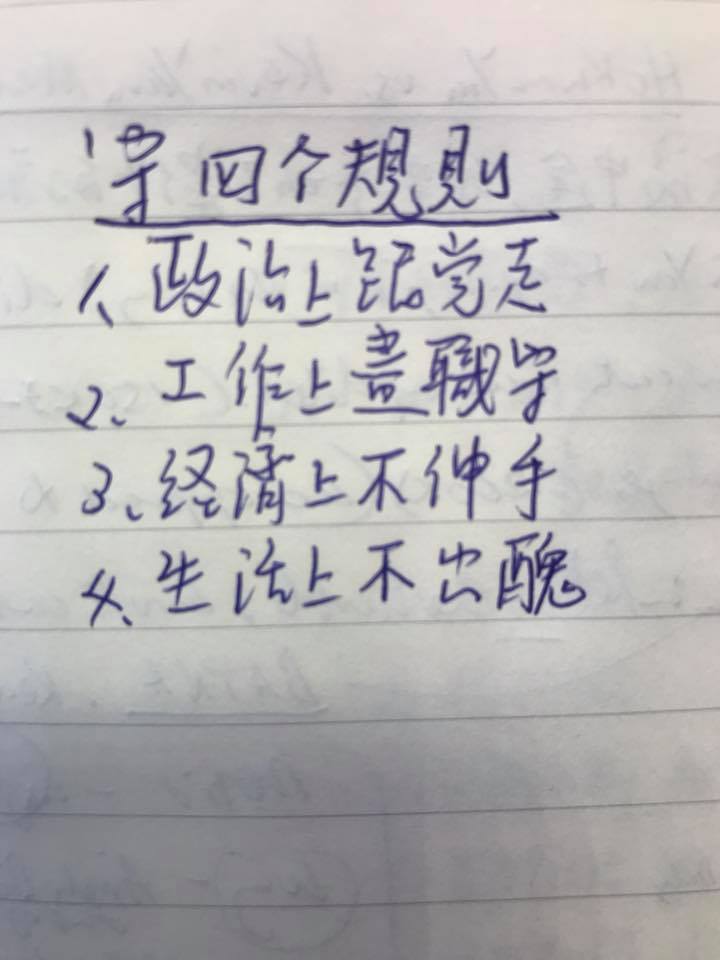 守四个規則
1、政治上跟党走
2、工作上盡職守
3、经濟上不伸手
4、生活上不出醜